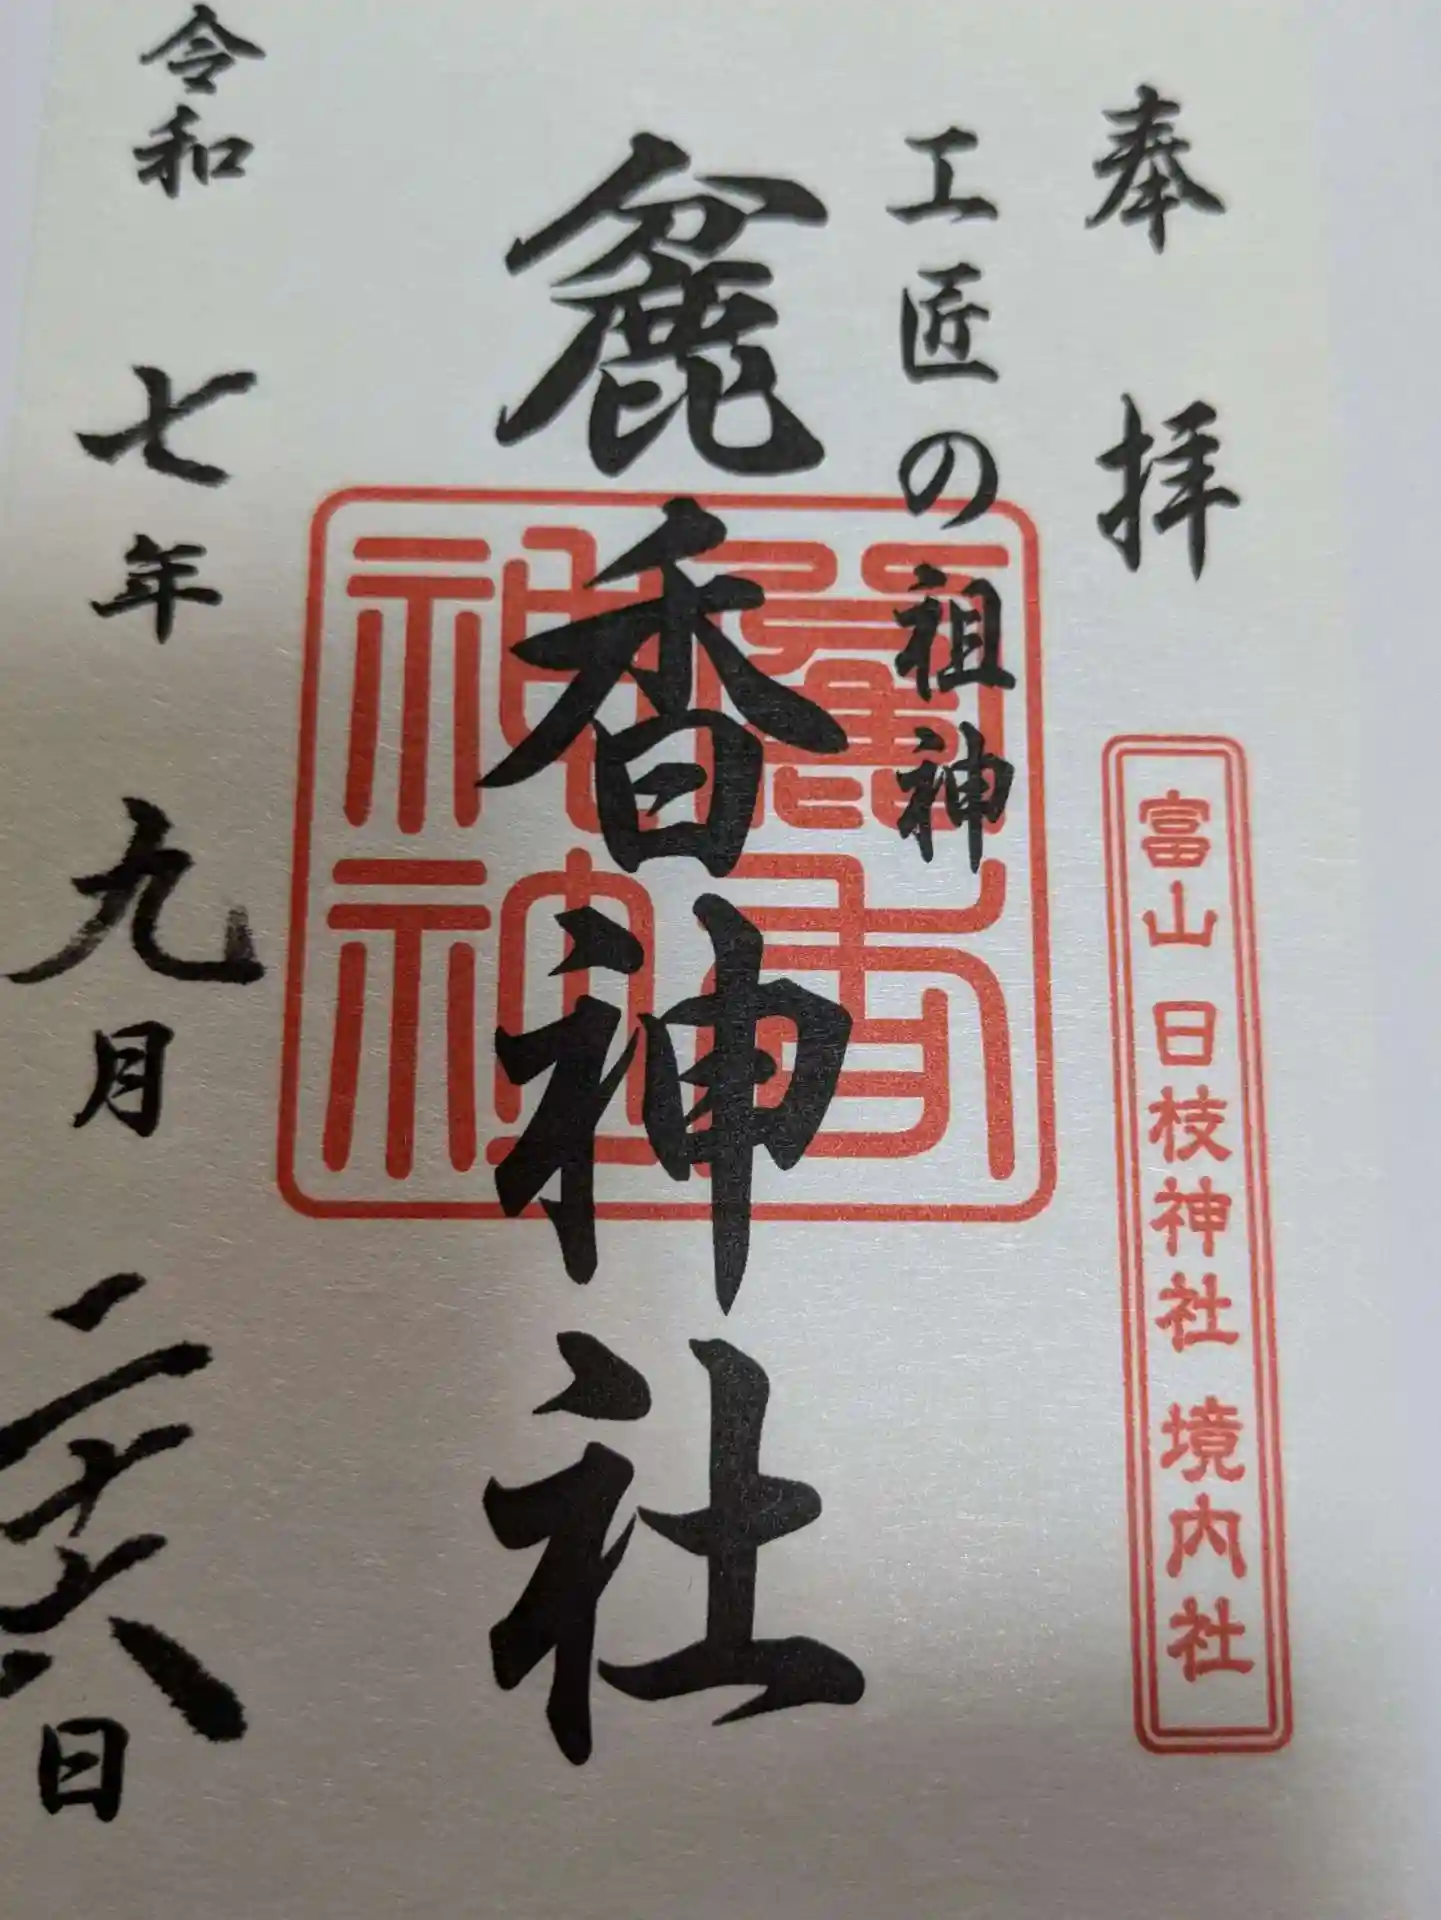 奉拝
富山 日枝神社 境内社
工匠の祖神
麁香神社
令和七年九月二十六日